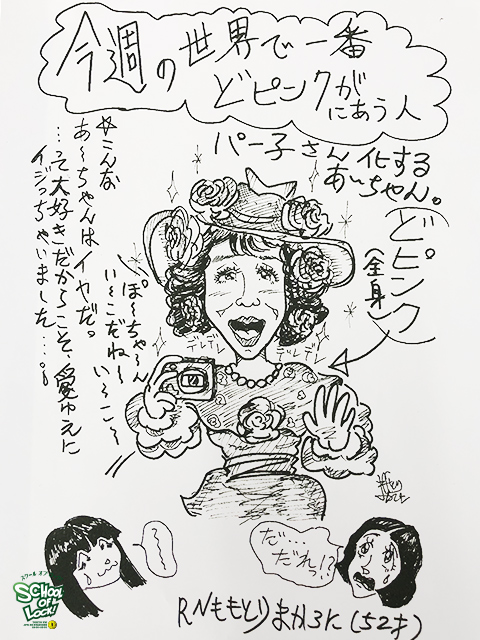 今週の世界で一番
どピンクが
にあう人
パー子さん化する
あ〜ちゃん。
どピンク
(全身)
☆こんな
あ〜ちゃんはイヤだ。
…って大好きだからこそ、愛ゆえに
イジっちゃいました…。
ぽ〜ちゃ〜ん
い〜こだね〜
い〜こ〜
デレデレ
デレデレ
だ…
だれ!?
スクール オブ
SCHOOL
OF
LOCK!
RNももとりまかろに(52才)